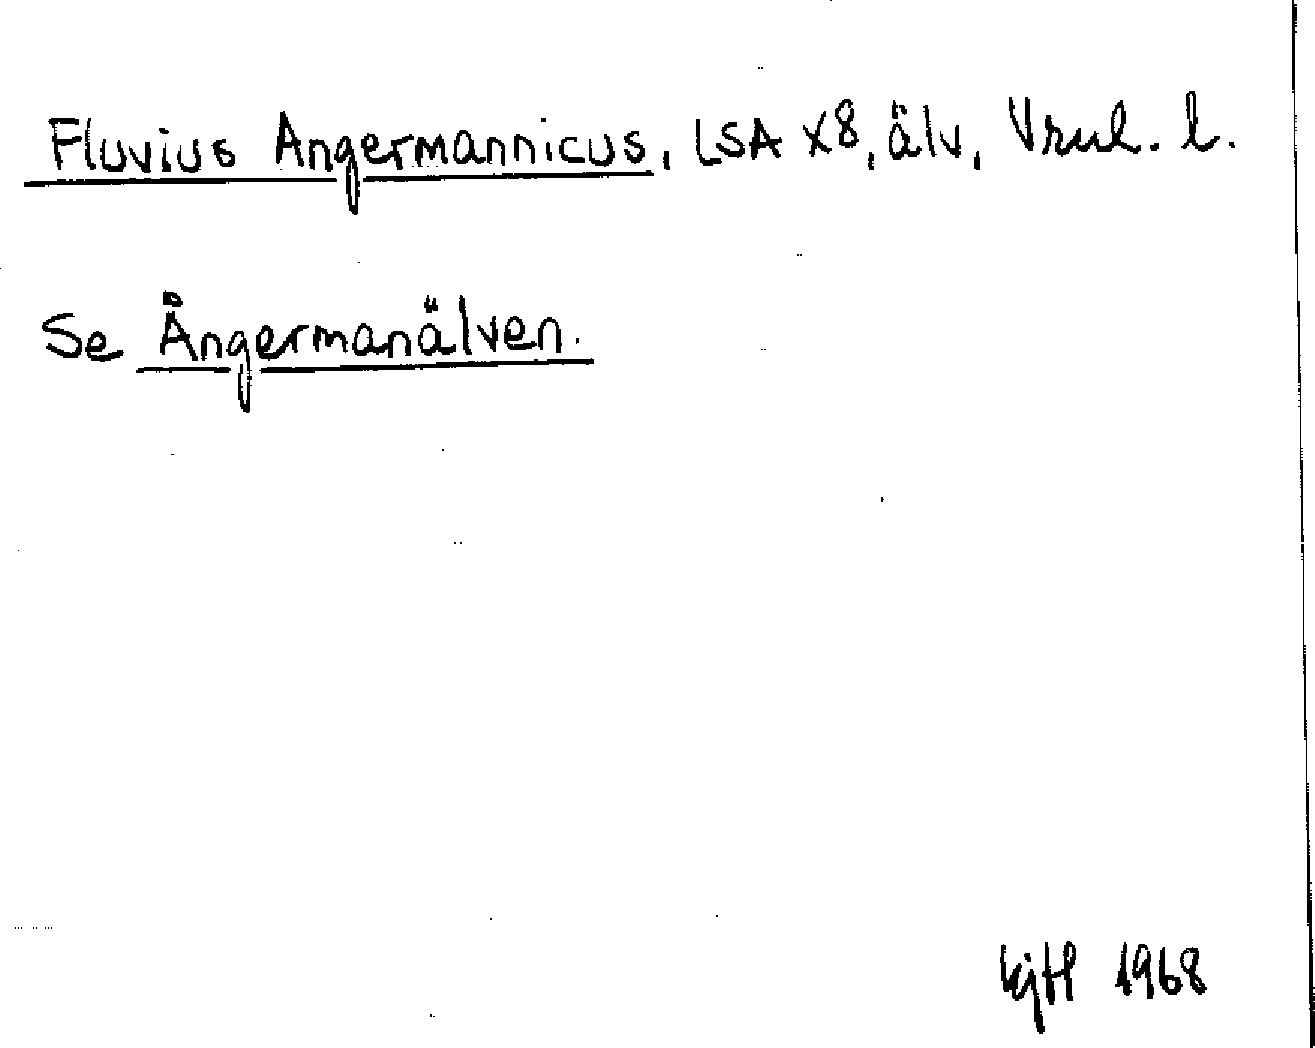 Fluvius Angermannicus, LSA X8, älv, Vrul. l.
Se Ångermanälven.
1968